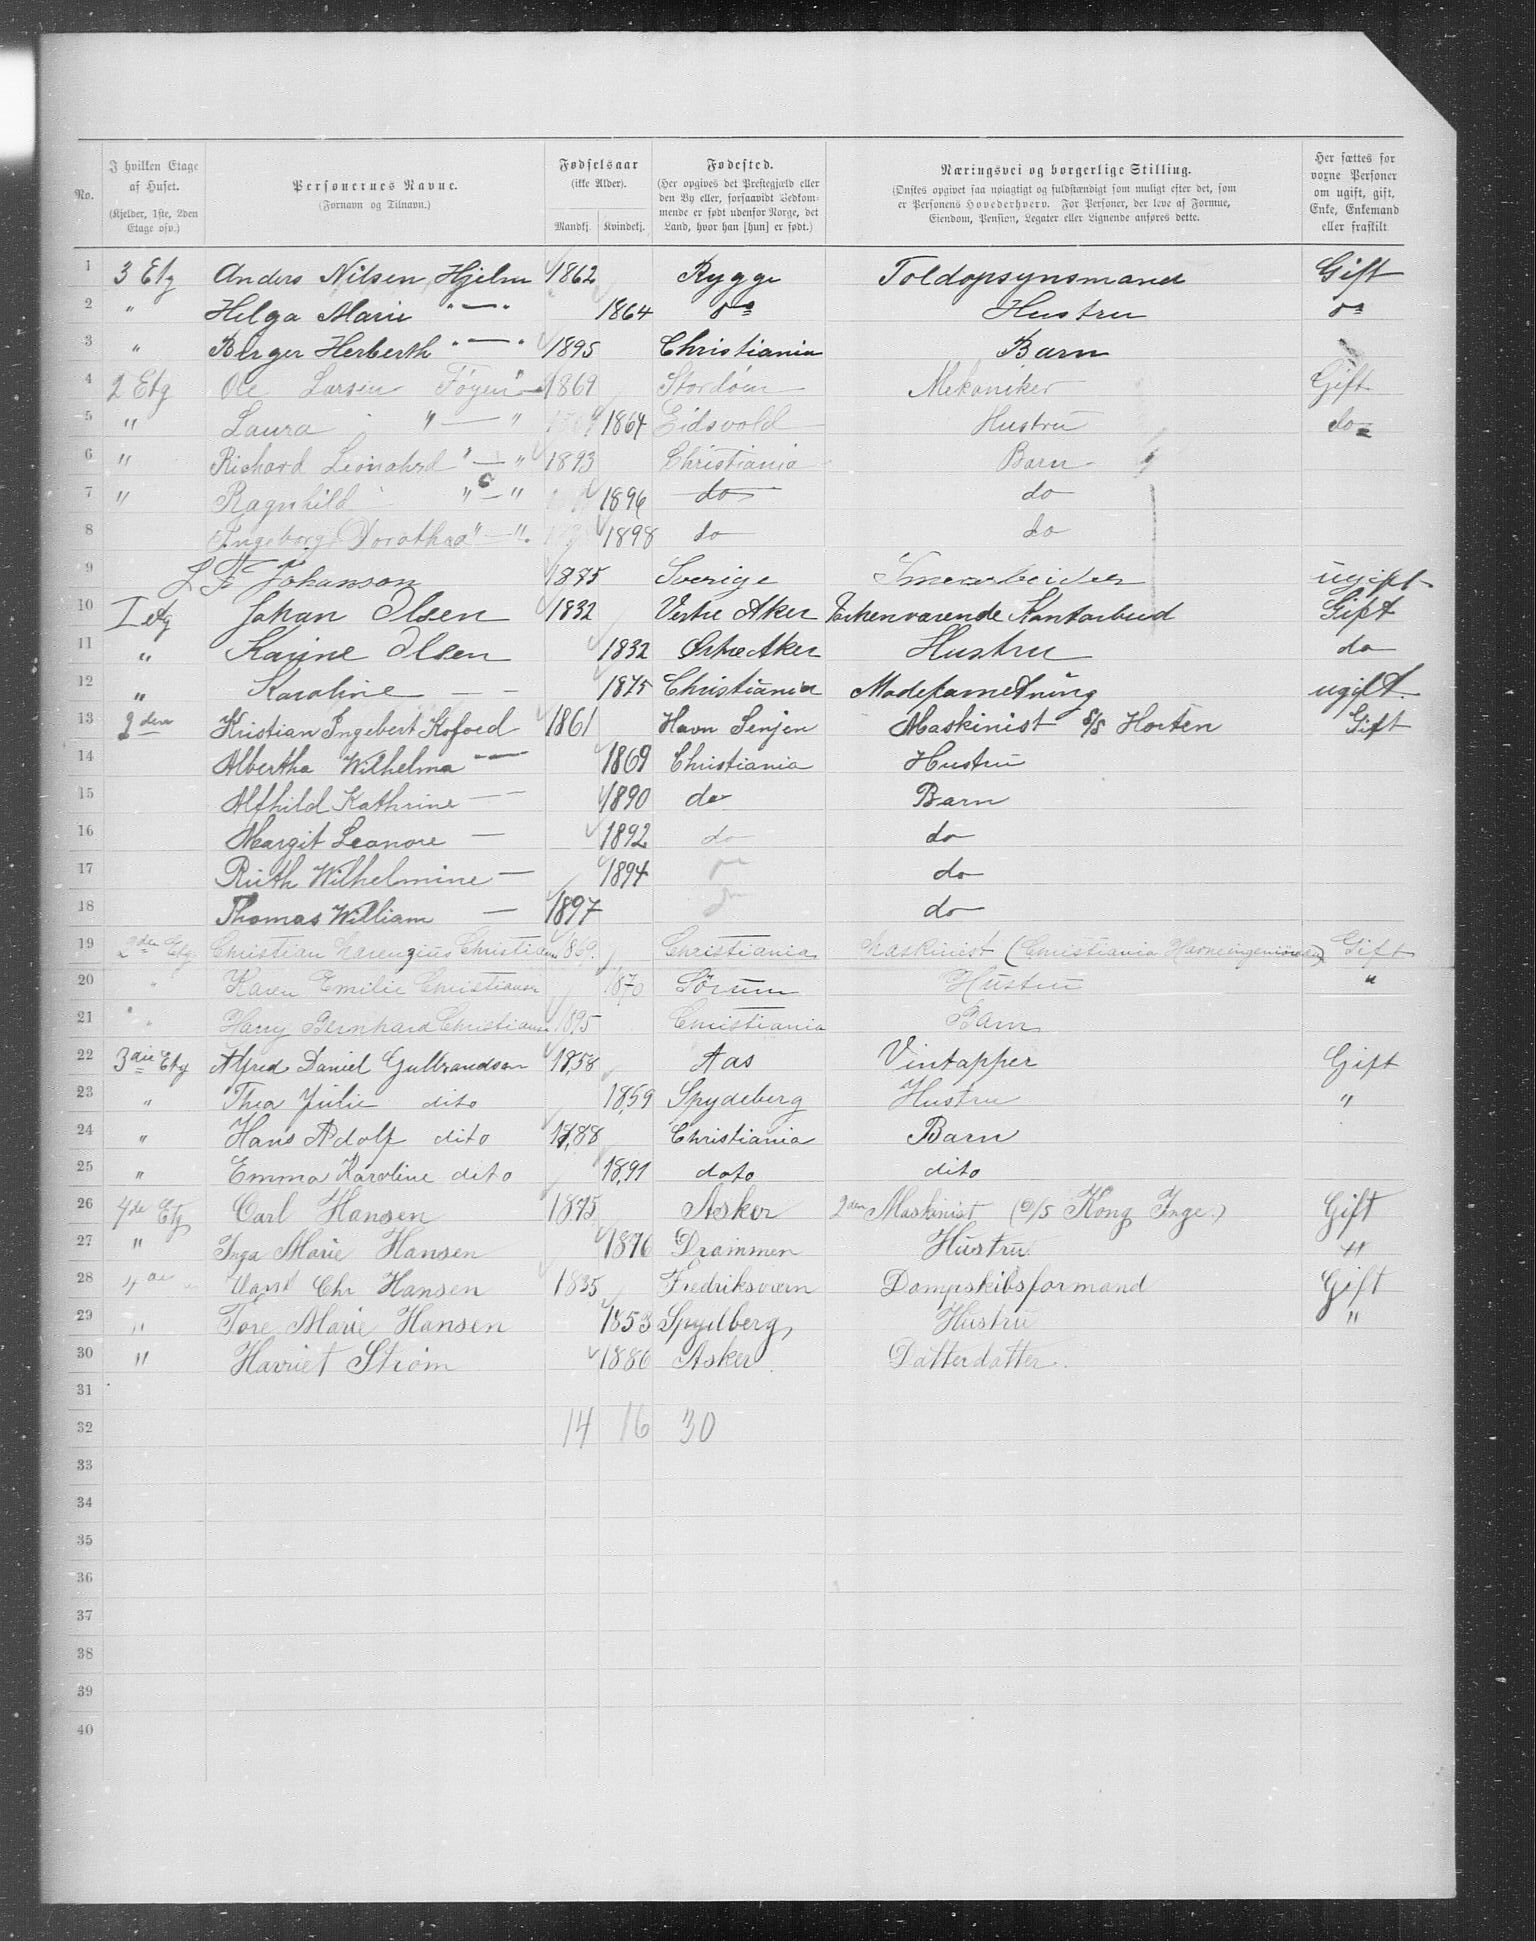 No. | I hvilken Etage af Huset. (Kjelder, 1ste, 2den Etage osv.) | Personernes Navne. (Fornavn og Tilnavn.) | Fødselsaar (ikke Alder). Mandkj. Kvindekj. | Fødested. (Her opgives det Prestegjæld eller den By eller, forsaavidt Vedkommende er født udenfor Norge, det Land, hvor han [hun] er født.) | Næringsvei og borgerlige Stilling. (Ønskes opgivet saa nøiagtigt og fuldstændigt som muligt efter det, som er Personens Hovederhverv. For Personer, der leve af Formue, Eiendom, Pension, Legater eller Lignende anføres dette.) | Her sættes for voxne Personer om ugift, gift, Enke, Enkemand eller fraskilt
1 3 Etg Anders Nilsen Hjelm 1862 Rygge Toldopsynsmand Gift
2 " Helga Marie "—" 1864 do Hustru do
3 " Birger Herberth "—" 1895 Christiania Barn
4 2 Etg Ole Larsen Føyen 1869 Mekaniker Gift
5 " Laura "—" 1864 Eidsvold Hustru do
6 " Richard Leonahrd "—" 1893 Christiania Barn
7 " Ragnhild "—" 1896 do do
8 Ingeborg Dorothea "—" 1898 do do
9 L F Johanson 1875 Sverige ugift
10 I etg Johan Olsen 1832 Vestre Aker Forhenværende Kontorbud Gift
11 " Karine Olsen 1832 Østre Aker Hustru do
12 " Karoline — — 1875 Christiania Modeforretning ugift.
13 2den Kristian Ingebert Kofoed 1861 Havn Senjen Maskinist S/S Horten Gift
14 Albertha Wilhelma — 1869 Christiania Hustru
15 Alfhild Kathrine — — 1890 do Barn
16 Margit Leonore — 1892 do do
17 Ruth Wilhelmine — 1894 do do
18 Thomas William — 1897 do do
19 2den Etg Christian Larenzius Christiansen 1869. Christiania Maskinist (Christiania Havneingeniør) Gift
20 " Karen Emilie Christiansen 1870 Sörum Hustru "
21 " Harry Bernhard Christiansen 1895 Christiania Barn
22 3die Etg Alfred Daniel Gulbrandsen 1858 Aas Vintapper Gift
23 " Thea Julie dito 1859 Spydeberg Hustru "
24 " Hans Adolf dito 1888 Christiania Barn
25 " Emma Karoline dito 1891 dato dito
26 4de Etg Carl Hansen 1875 Asker 2den Maskinist (D/S Kong Inge.) Gift
27 " Inga Marie Hansen 1876 Drammen Hustru "
28 4de Chr Hansen 1835 Fredriksværn Dampskibsformand Gift
29 " Tore Marie Hansen 1853 Spydberg Hustru "
30 " Harriet Strøm 1886 Asker Datterdatter.
31
32 14 16 30
33
34
35
36
37
38
39
40